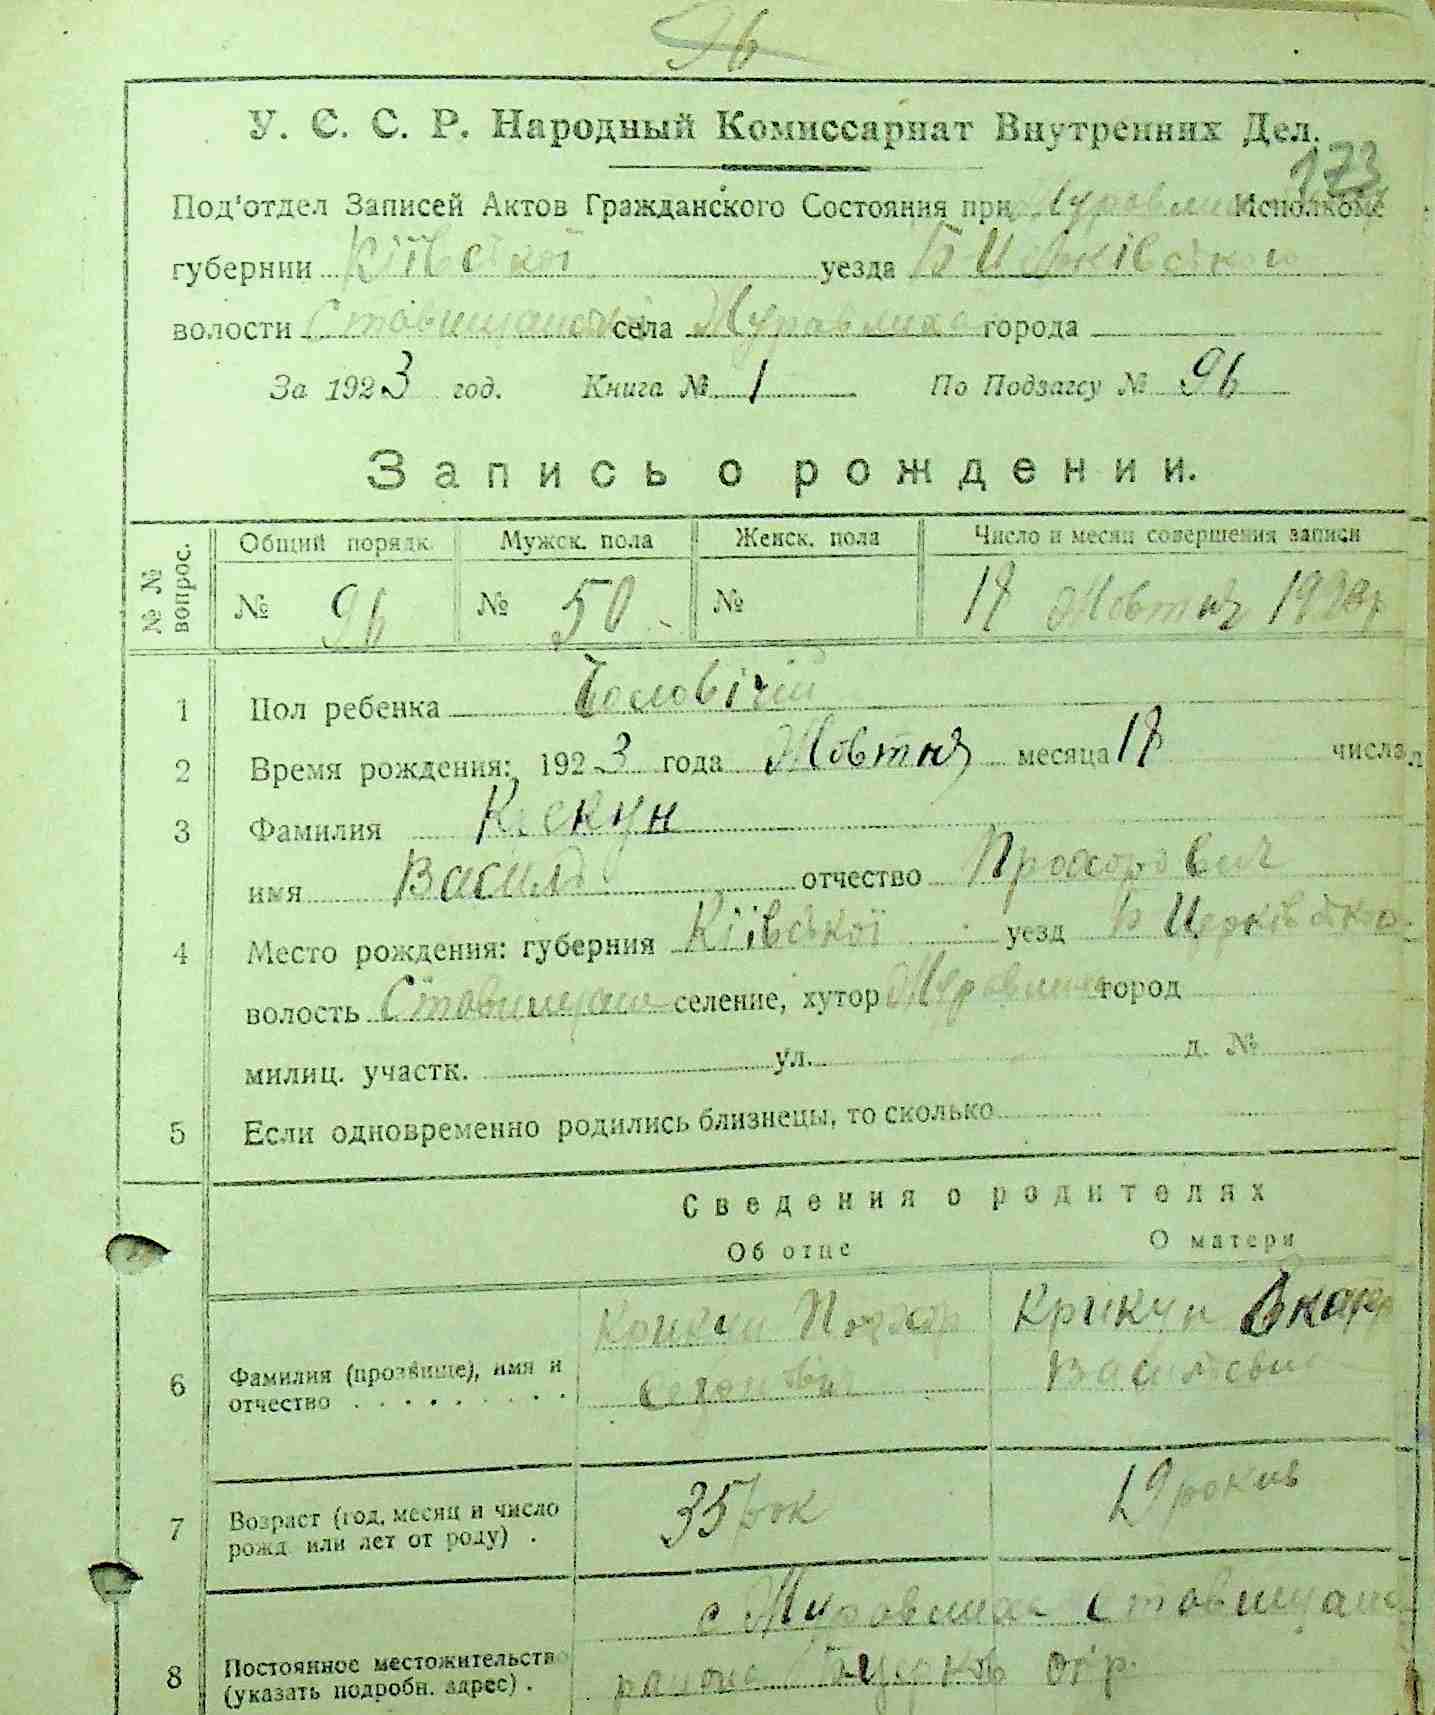 96
У. С. С. Р. Народный Комиссариат Внутренних Дел.
173
Под'отдел Записей Актов Гражданского Состояния при Исполкоме
губернии Київської уезда Б Церківського
волости села Журавлиха города
За 1923 год. Книга № 1 По Подзагсу № 96
Запись о рождении.
№ № вопрос. Общий порядк. Мужск. пола Женск. пола Число и месяц совершения записи
№ 96 № 50 № Жовтня
1 Пол ребенка Чоловічий
2 Время рождения: 1923 года Жовтня месяца числа
3 Фамилия Крекун
имя Василь отчество Прохорович
4 Место рождения: губерния Київської уезд Б Церківсько
волость Ставищан селение, хутор город
милиц. участк. ул. д. №
5 Если одновременно родились близнецы, то сколько
Сведения о родителях
Об отце О матери
6 Фамилия (прозвище), имя и отчество Крикун Крикун
7 Возраст (год, месяц и число рожд. или лет от роду) . 35 рок 29 рокив
8 Постоянное местожительство (указать подробн. адрес) .